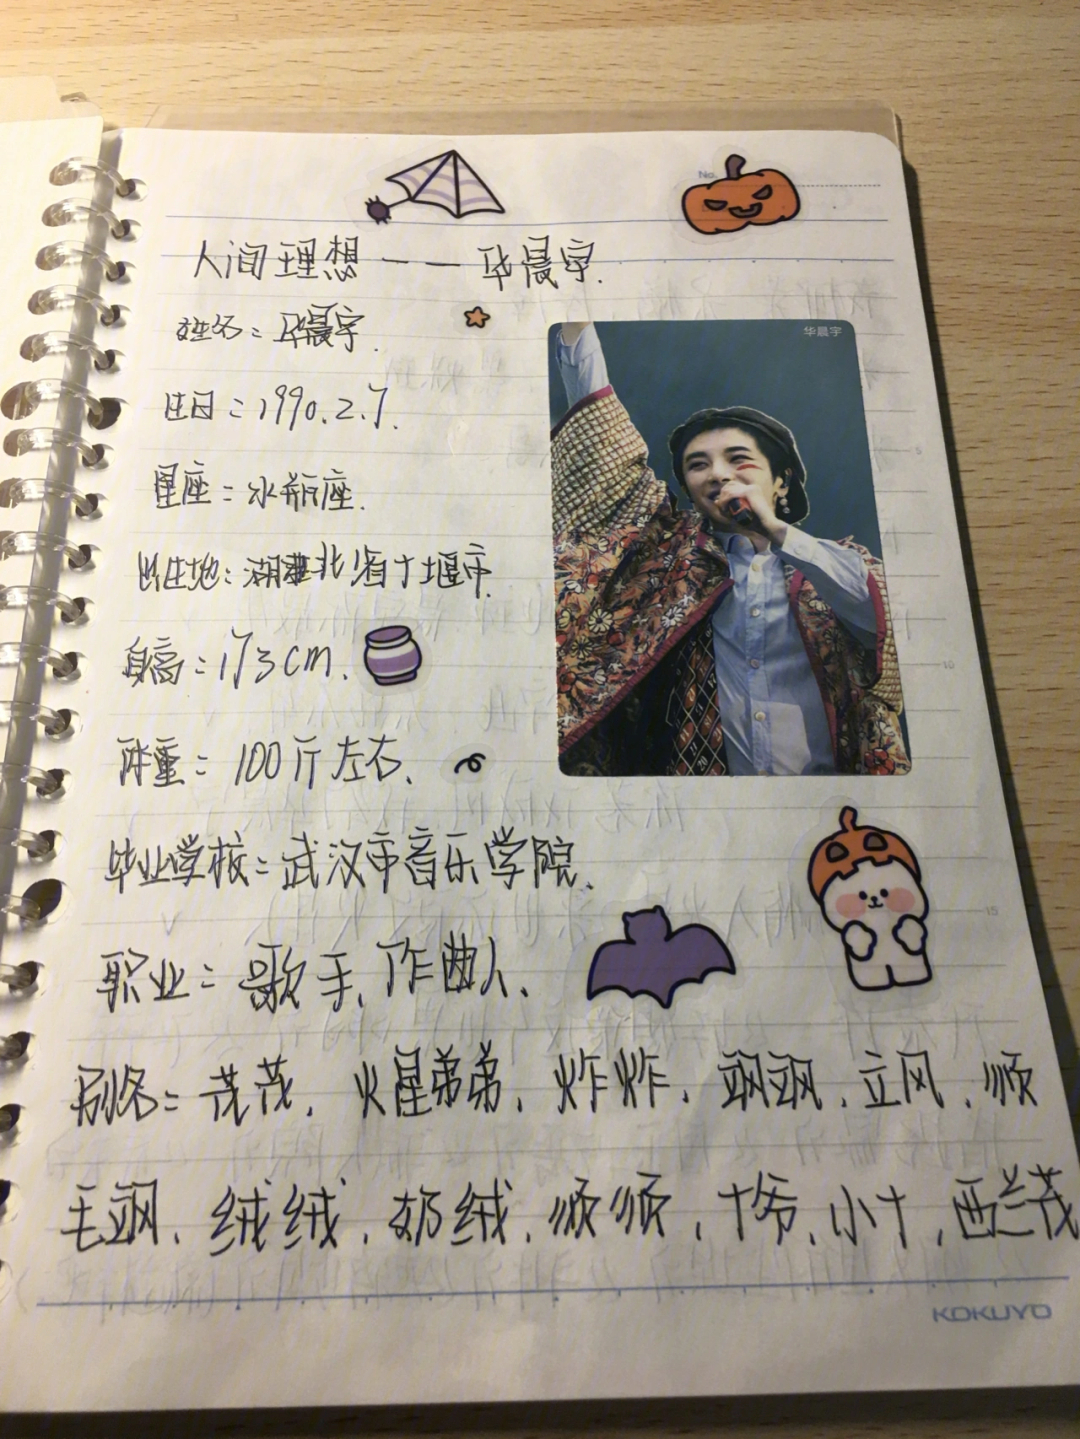 No.
人间理想——华晨宇.
华晨宇
姓名:华晨宇.
生日:1990.2.7.
星座:水瓶座.
出生地:湖北省十堰市.
身高:173cm.
体重:100斤左右.
毕业学校:武汉市音乐学院.
职业:歌手、作曲人、
别名:茂茂、火星弟弟、炸炸、飒飒、立风、顺
毛飒、绒绒、奶绒、顺顺、十爷、小十、西兰茂
KOKUYO